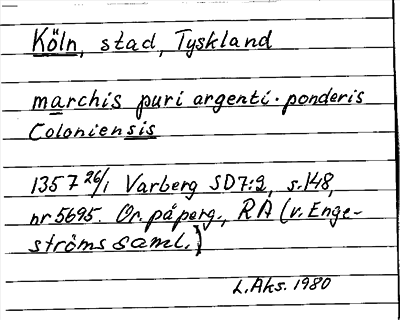 Köln, stad, Tyskland
marchis puri argenti. ponderis
Coloniensis
1357 26/1 Varberg SD7:2, s.148,
nr 5695. Or. på perg., RA (v. Enge-
ströms saml.)
L.Aks. 1980